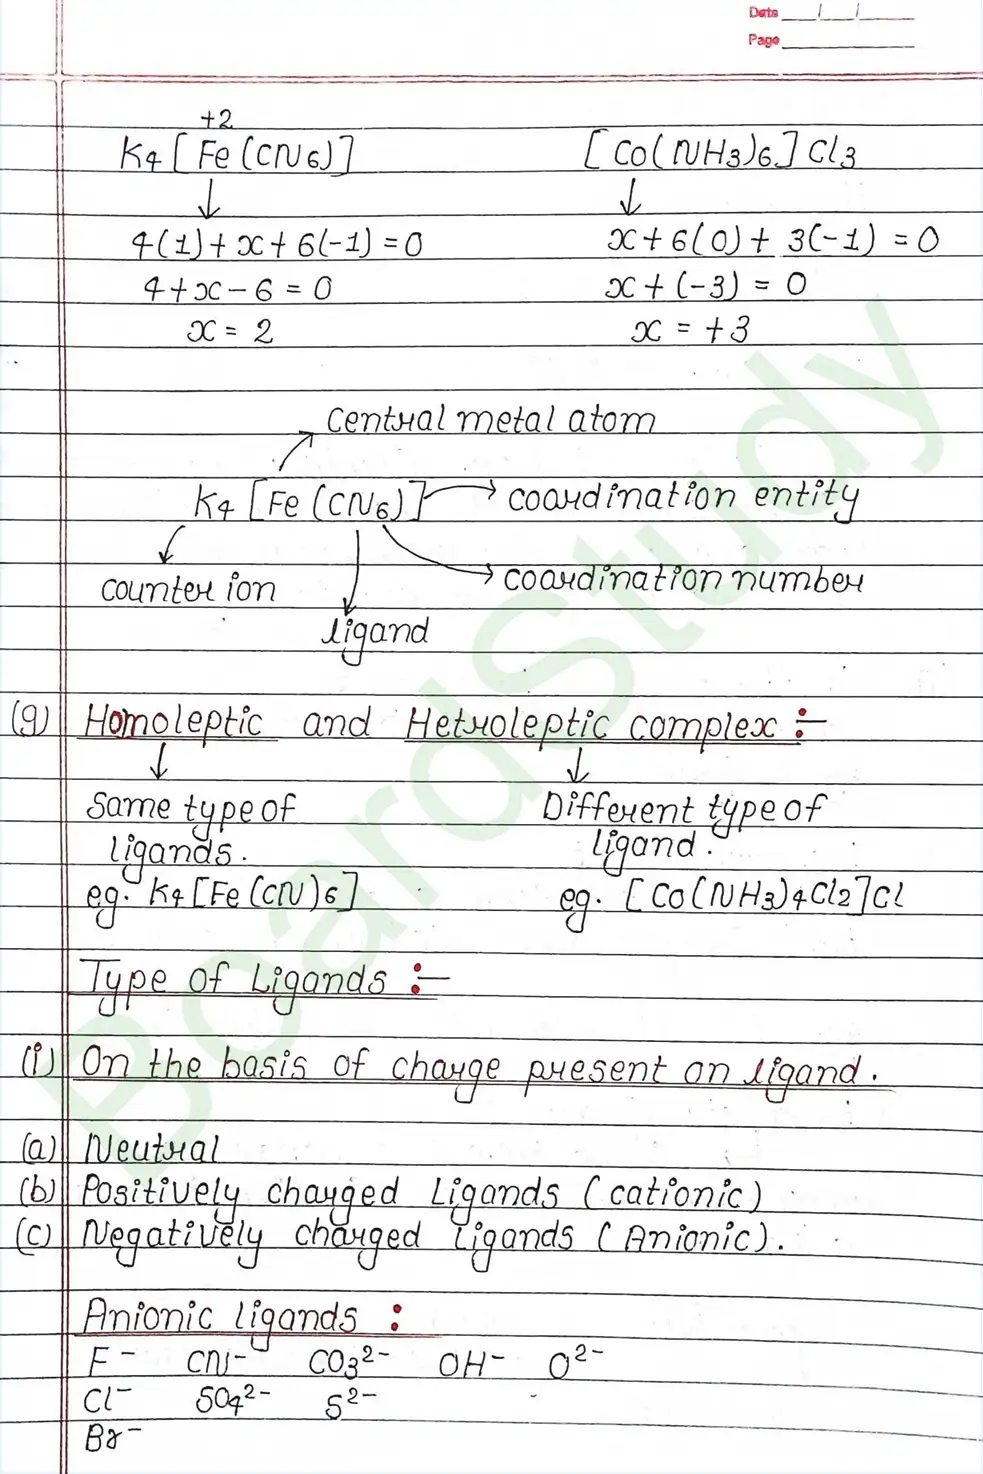 Date / /
Page
+2
K4 [Fe(CN6)] [Co(NH3)6]Cl3
4(1)+x+6(-1)=0 x+6(0)+3(-1)=0
4+x-6=0 x+(-3)=0
x=2 x=+3
Central metal atom
K4 [Fe(CN6)] coordination entity
counter ion coordination number
ligand
(g) Homoleptic and Hetroleptic complex :-
Same type of Different type of
ligands. ligand.
eg. K4[Fe(CN)6] eg. [Co(NH3)4Cl2]Cl
Type of Ligands :-
(i) On the basis of charge present on ligand.
(a) Neutral
(b) Positively charged Ligands (cationic)
(c) Negatively charged Ligands (Anionic).
Anionic ligands :
F- CN- CO3²- OH- O²-
Cl- SO4²- S²-
Br-
BoardStudy